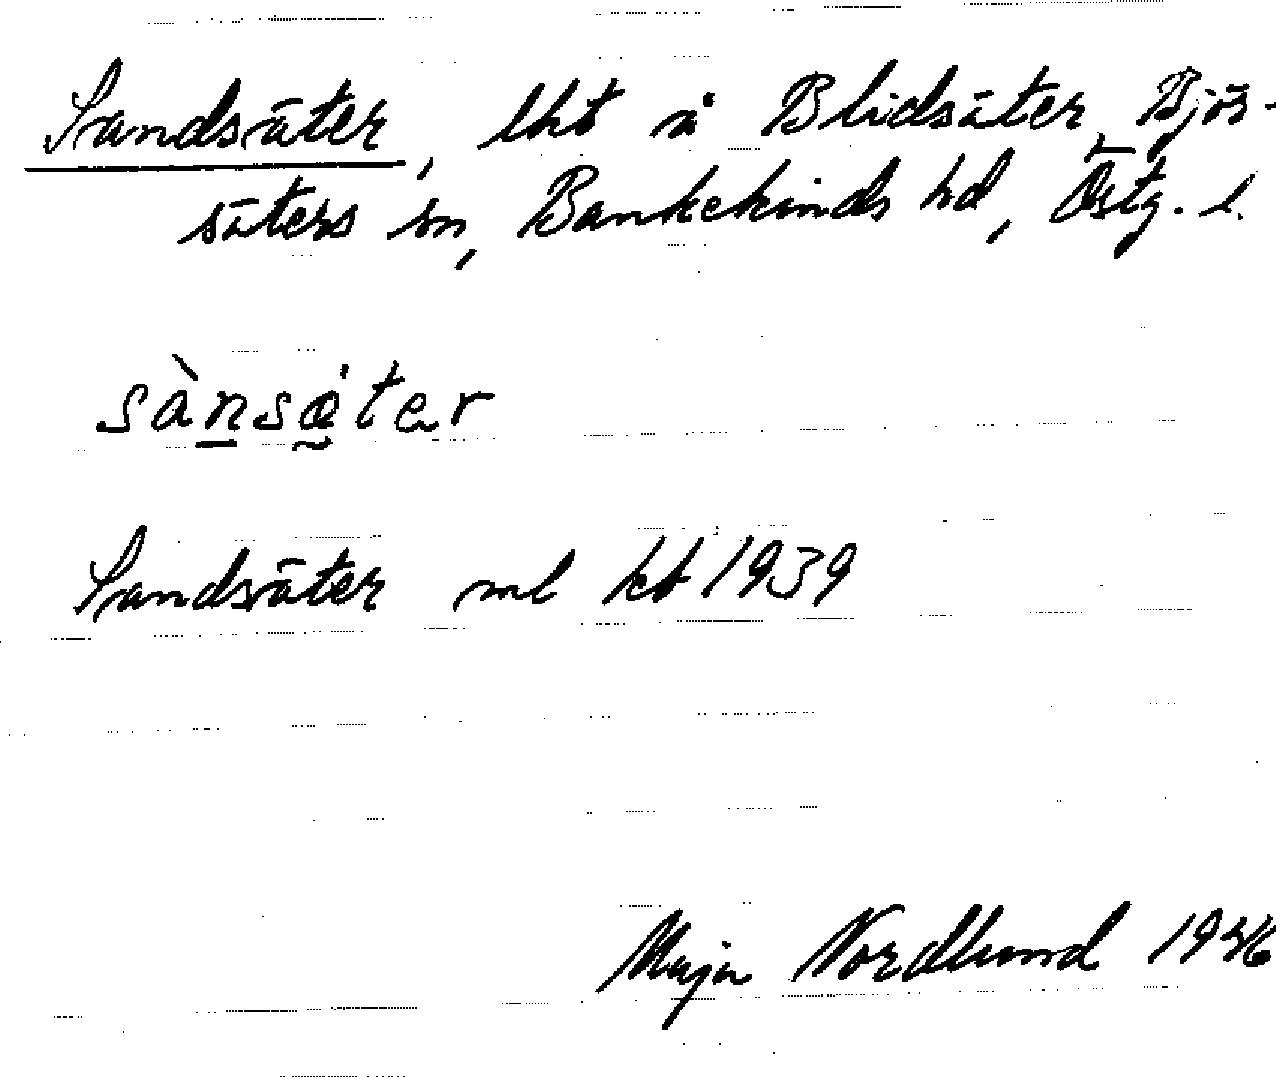 Sandsäter, lht å Blidsäter, Björ-
säters sn, Bankekinds hd, Östg. l.
sànsæ̀ter
Sandsäter ml kb 1939
Maja Nordlund 1946